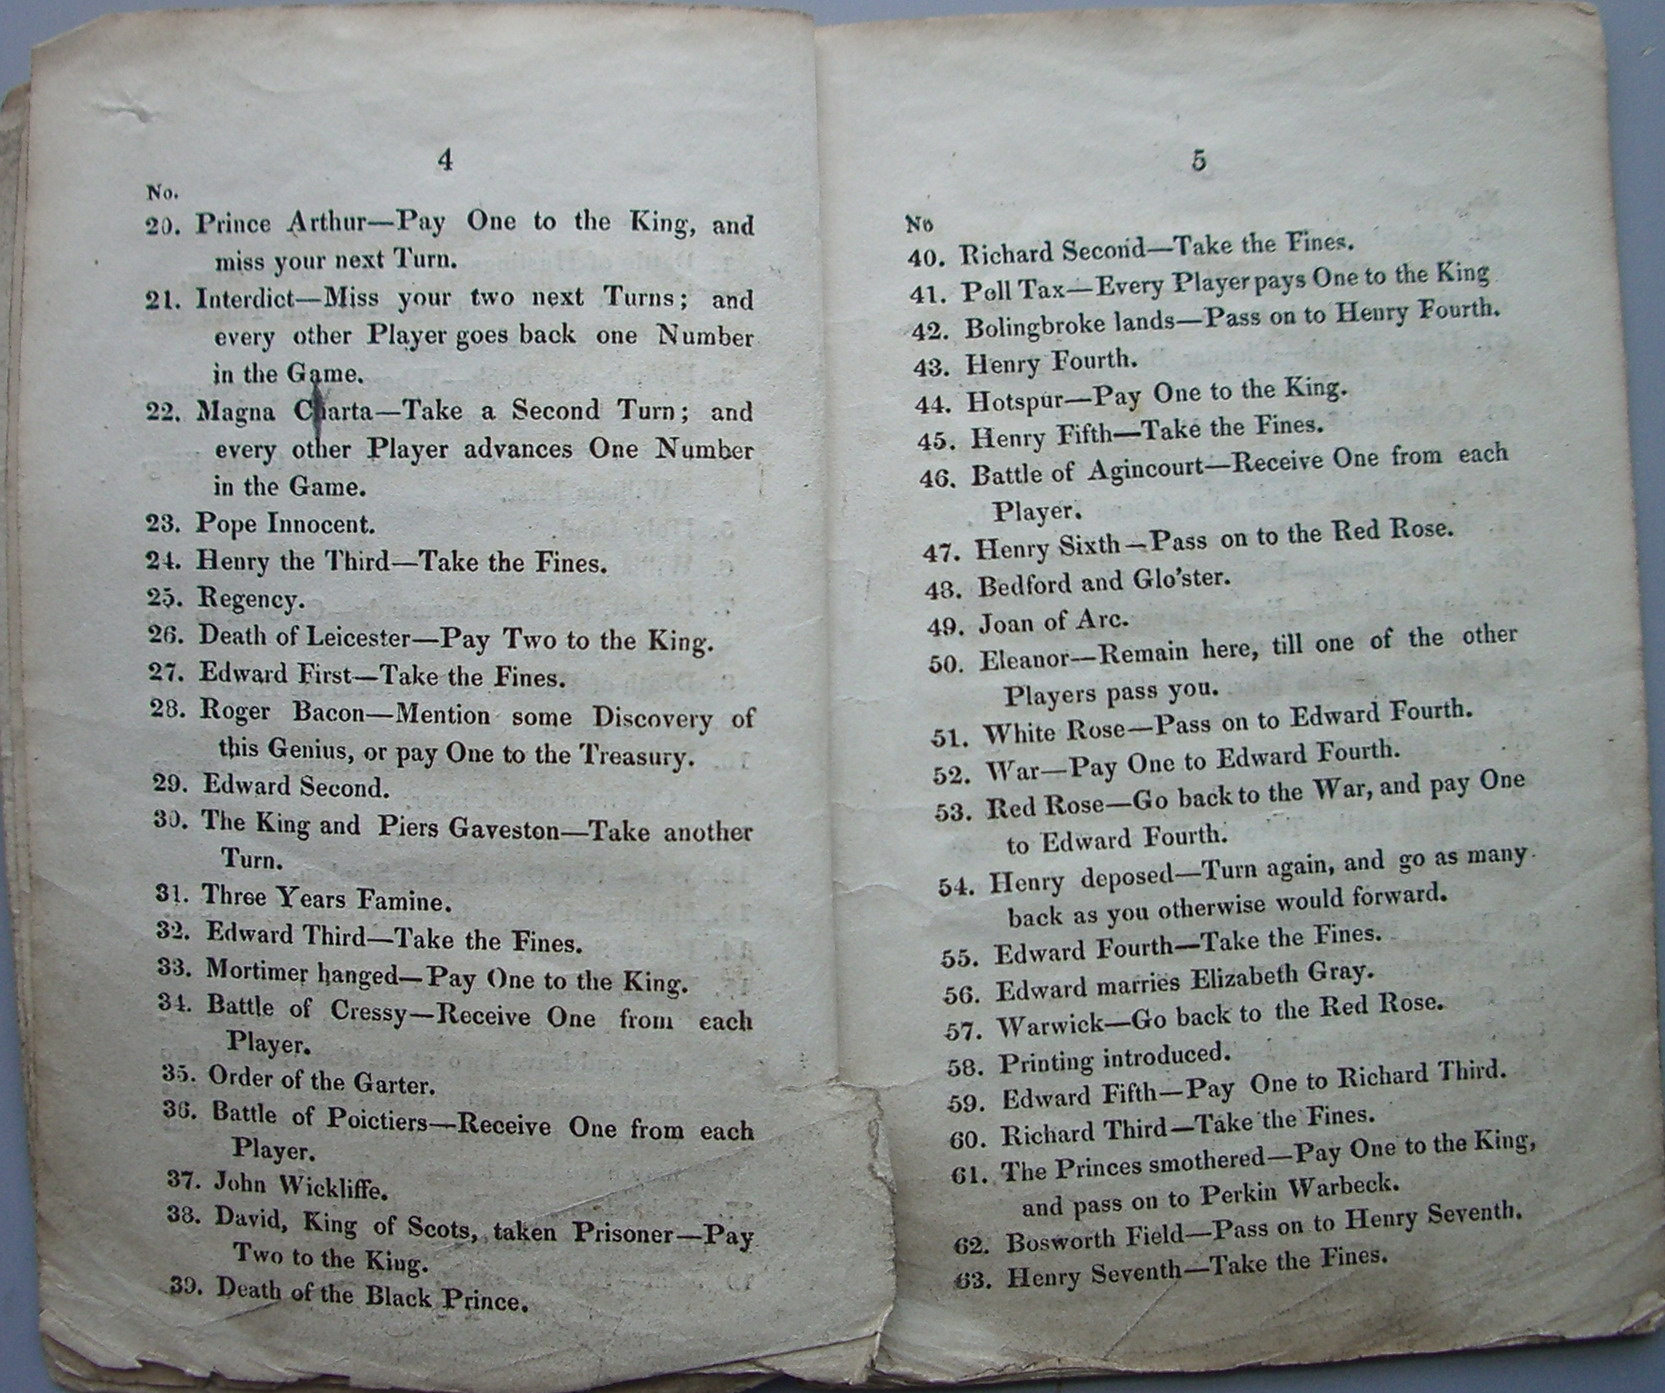 4
No.
20. Prince Arthur—Pay One to the King, and
miss your next Turn.
21. Interdict—Miss your two next Turns; and
every other Player goes back one Number
in the Game.
22. Magna Charta—Take a Second Turn; and
every other Player advances One Number
in the Game.
23. Pope Innocent.
24. Henry the Third—Take the Fines.
25. Regency.
26. Death of Leicester—Pay Two to the King.
27. Edward First—Take the Fines.
28. Roger Bacon—Mention some Discovery of
this Genius, or pay One to the Treasury.
29. Edward Second.
30. The King and Piers Gaveston—Take another
Turn.
31. Three Years Famine.
32. Edward Third—Take the Fines.
33. Mortimer hanged—Pay One to the King.
34. Battle of Cressy—Receive One from each
Player.
35. Order of the Garter.
36. Battle of Poictiers—Receive One from each
Player.
37. John Wickliffe.
38. David, King of Scots, taken Prisoner—Pay
Two to the King.
39. Death of the Black Prince.
5
No
40. Richard Second—Take the Fines.
41. Poll Tax—Every Player pays One to the King
42. Bolingbroke lands—Pass on to Henry Fourth.
43. Henry Fourth.
44. Hotspur—Pay One to the King.
45. Henry Fifth—Take the Fines.
46. Battle of Agincourt—Receive One from each
Player.
47. Henry Sixth—Pass on to the Red Rose.
48. Bedford and Glo'ster.
49. Joan of Arc.
50. Eleanor—Remain here, till one of the other
Players pass you.
51. White Rose—Pass on to Edward Fourth.
52. War—Pay One to Edward Fourth.
53. Red Rose—Go back to the War, and pay One
to Edward Fourth.
54. Henry deposed—Turn again, and go as many
back as you otherwise would forward.
55. Edward Fourth—Take the Fines.
56. Edward marries Elizabeth Gray.
57. Warwick—Go back to the Red Rose.
58. Printing introduced.
59. Edward Fifth—Pay One to Richard Third.
60. Richard Third—Take the Fines.
61. The Princes smothered—Pay One to the King,
and pass on to Perkin Warbeck.
62. Bosworth Field—Pass on to Henry Seventh.
63. Henry Seventh—Take the Fines.